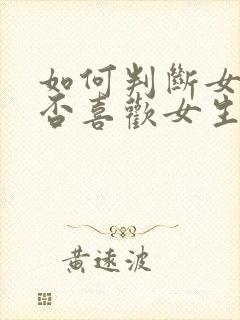 如何判斷女
否喜歡女生
黃遠波